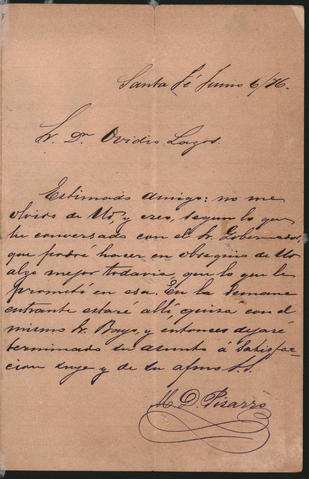 Santa Fé Junio 6/76.
Sr. Dn. Ovidio Lagos.
Estimado amigo: no me
olvido de Ud, y creo, segun lo que
he conversado con el Sr. Gobernador,
que podré hacer en obsequio de Ud
algo mejor todavia, que lo que le
prometí en esa. En la Semana
entrante estaré allí, quiza con el
mismo Sr. Bayo, y entonces dejaré
terminado su asunto á Satisfac-
cion suya y de su afmo S.S.
M. D. Pizarro